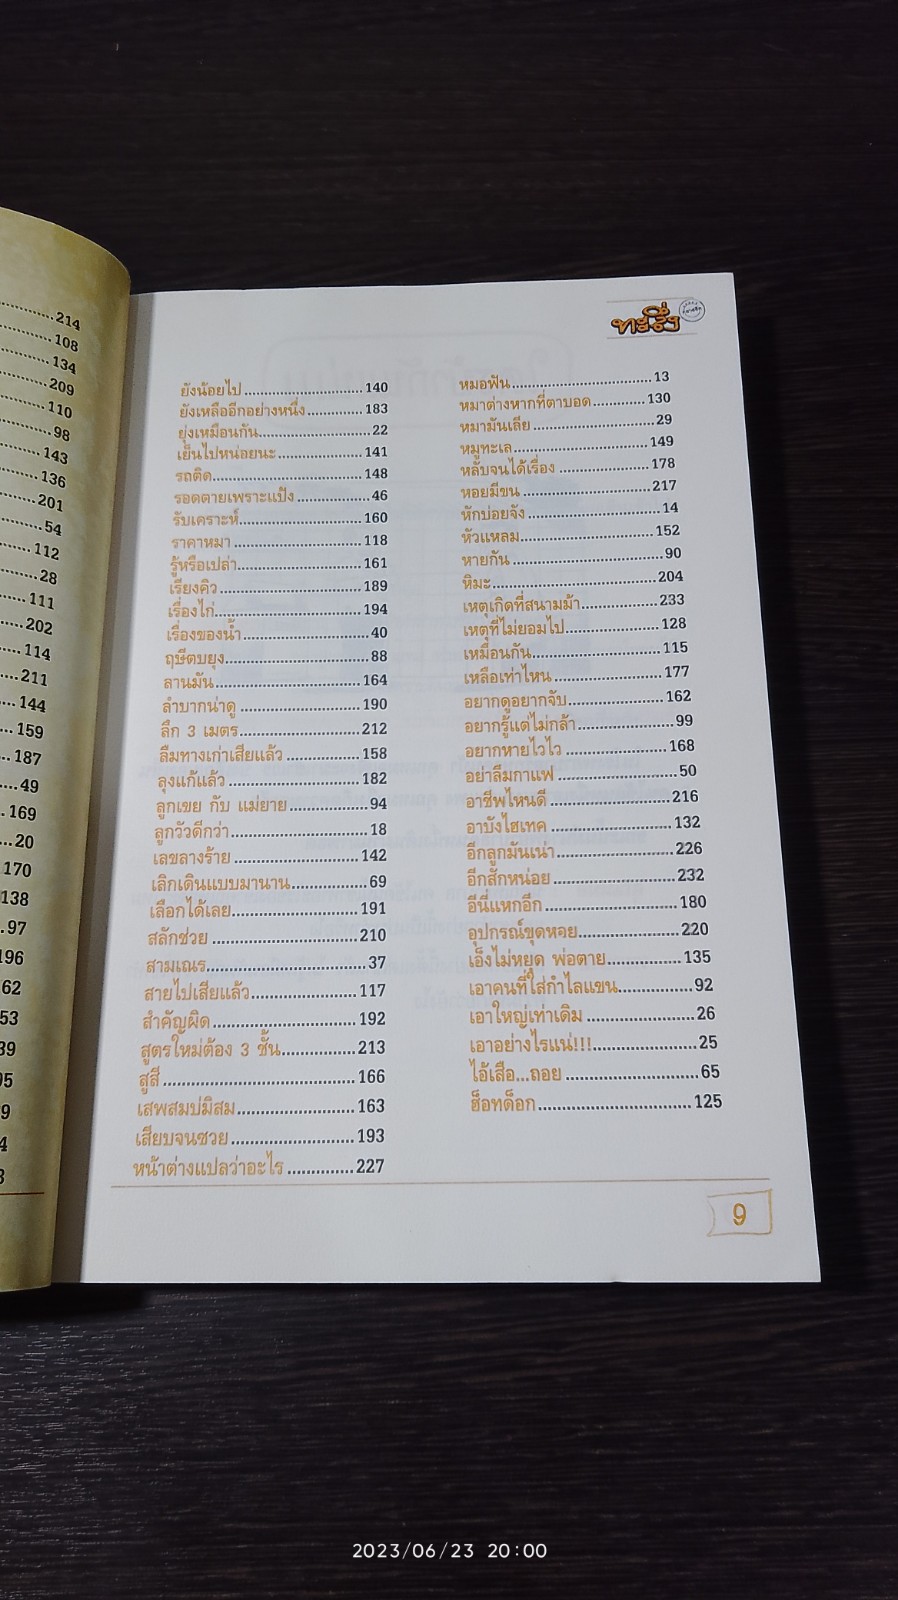 214
108
134
209
110
98
143
136
201
54
112
28
111
202
114
211
144
159
187
49
169
20
170
138
97
196
62
53
39
95
9
4
3
ทะลึ่ง
ยังน้อยไป 140
ยังเหลืออีกอย่างหนึ่ง 183
ยุ่งเหมือนกัน 22
เย็นไปหน่อยนะ 141
รถติด 148
รอดตายเพราะแป้ง 46
รับเคราะห์ 160
ราคาหมา 118
รู้หรือเปล่า 161
เรียงคิว 189
เรื่องไก่ 194
เรื่องของน้ำ 40
ฤษีตบยุง 88
ลานมัน 164
ลำบากน่าดู 190
ลึก 3 เมตร 212
ลืมทางเก่าเสียแล้ว 158
ลุงแก้แล้ว 182
ลูกเขย กับ แม่ยาย 94
ลูกวัวดีกว่า 18
เลขลางร้าย 142
เลิกเดินแบบมานาน 69
เลือกได้เลย 191
สลักช่วย 210
สามเณร 37
สายไปเสียแล้ว 117
สำคัญผิด 192
สูตรใหม่ต้อง 3 ชั้น 213
สูสี 166
เสพสมบ่มิสม 163
เสียบจนซวย 193
หน้าต่างแปลว่าอะไร 227
หมอฟัน 13
หมาต่างหากที่ตาบอด 130
หมามันเลีย 29
หมูทะเล 149
หลับจนได้เรื่อง 178
หอยมีขน 217
หักบ่อยจัง 14
หัวแหลม 152
หายกัน 90
หิมะ 204
เหตุเกิดที่สนามม้า 233
เหตุที่ไม่ยอมไป 128
เหมือนกัน 115
เหลือเท่าไหน 177
อยากดูอยากจับ 162
อยากรู้แต่ไม่กล้า 99
อยากหายไวไว 168
อย่าลืมกาแฟ 50
อาชีพไหนดี 216
อาบังไฮเทค 132
อีกลูกมันเน่า 226
อีกสักหน่อย 232
อีนี่แหกอีก 180
อุปกรณ์ขุดหอย 220
เอ็งไม่หยุด พ่อตาย 135
เอาคนที่ใส่กำไลแขน 92
เอาใหญ่เท่าเดิม 26
เอาอย่างไรแน่!!! 25
ไอ้เสือ...ถอย 65
ฮ็อทด็อก 125
9
2023/06/23 20:00